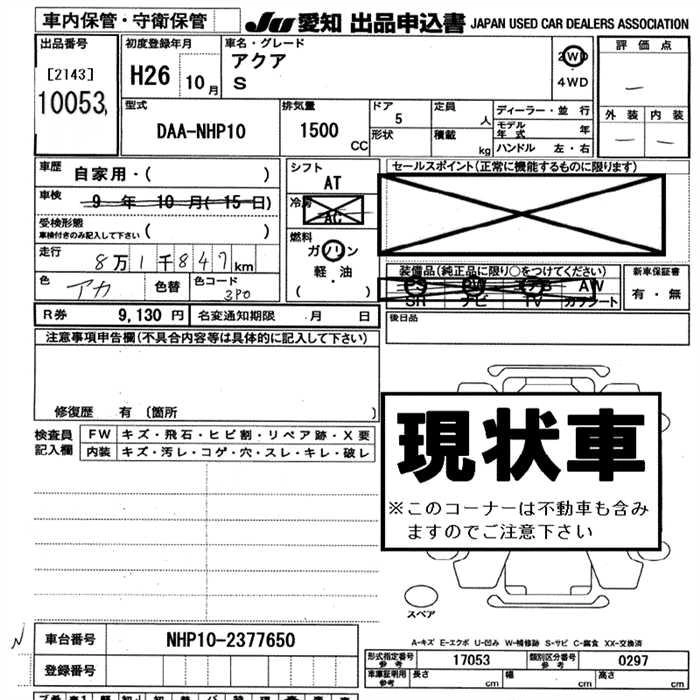 車内保管・守衛保管
JU 愛知 出品申込書 JAPAN USED CAR DEALERS ASSOCIATION
出品番号
[2143]
10053
初度登録年月
H26 10月
車名・グレード
アクア
S
2WD
4WD
評価点
－
外装 内装
－ －
型式
DAA-NHP10
排気量
1500 CC
ドア 5
形状
定員 人
積載 kg
ディーラー・並行
モデル年式 年
ハンドル 左・右
車歴 自家用・( )
車検 9年 10月(15日)
受検形態
車検付きのみ記入して下さい ( )
走行 8万1千847km
色 アカ 色替 色コード 3P0
シフト
AT
冷房
AC
燃料
ガソリン
軽・油
( )
セールスポイント(正常に機能するものに限ります)
装備品(純正品に限り○をつけてください)
PS PW エアB AW
SR ナビ TV カワシート
新車保証書
有・無
R券 9,130 円 名変通知期限 月 日
後日品
注意事項申告欄(不具合内容等は具体的に記入して下さい)
修復歴 有 〔箇所 〕
検査員記入欄
FW キズ・飛石・ヒビ割・リペア跡・X要
内装 キズ・汚レ・コゲ・穴・スレ・キレ・破レ
現状車
※このコーナーは不動車も含み
ますのでご注意下さい
スペア
A-キズ E-エクボ U-凹み W-補修跡 S-サビ C-腐食 XX-交換済
N
車台番号 NHP10-2377650
登録番号
形式指定番号 参考 17053 類別区分番号 参考 0297
車庫証明用 参考 長さ cm 幅 cm 高さ cm